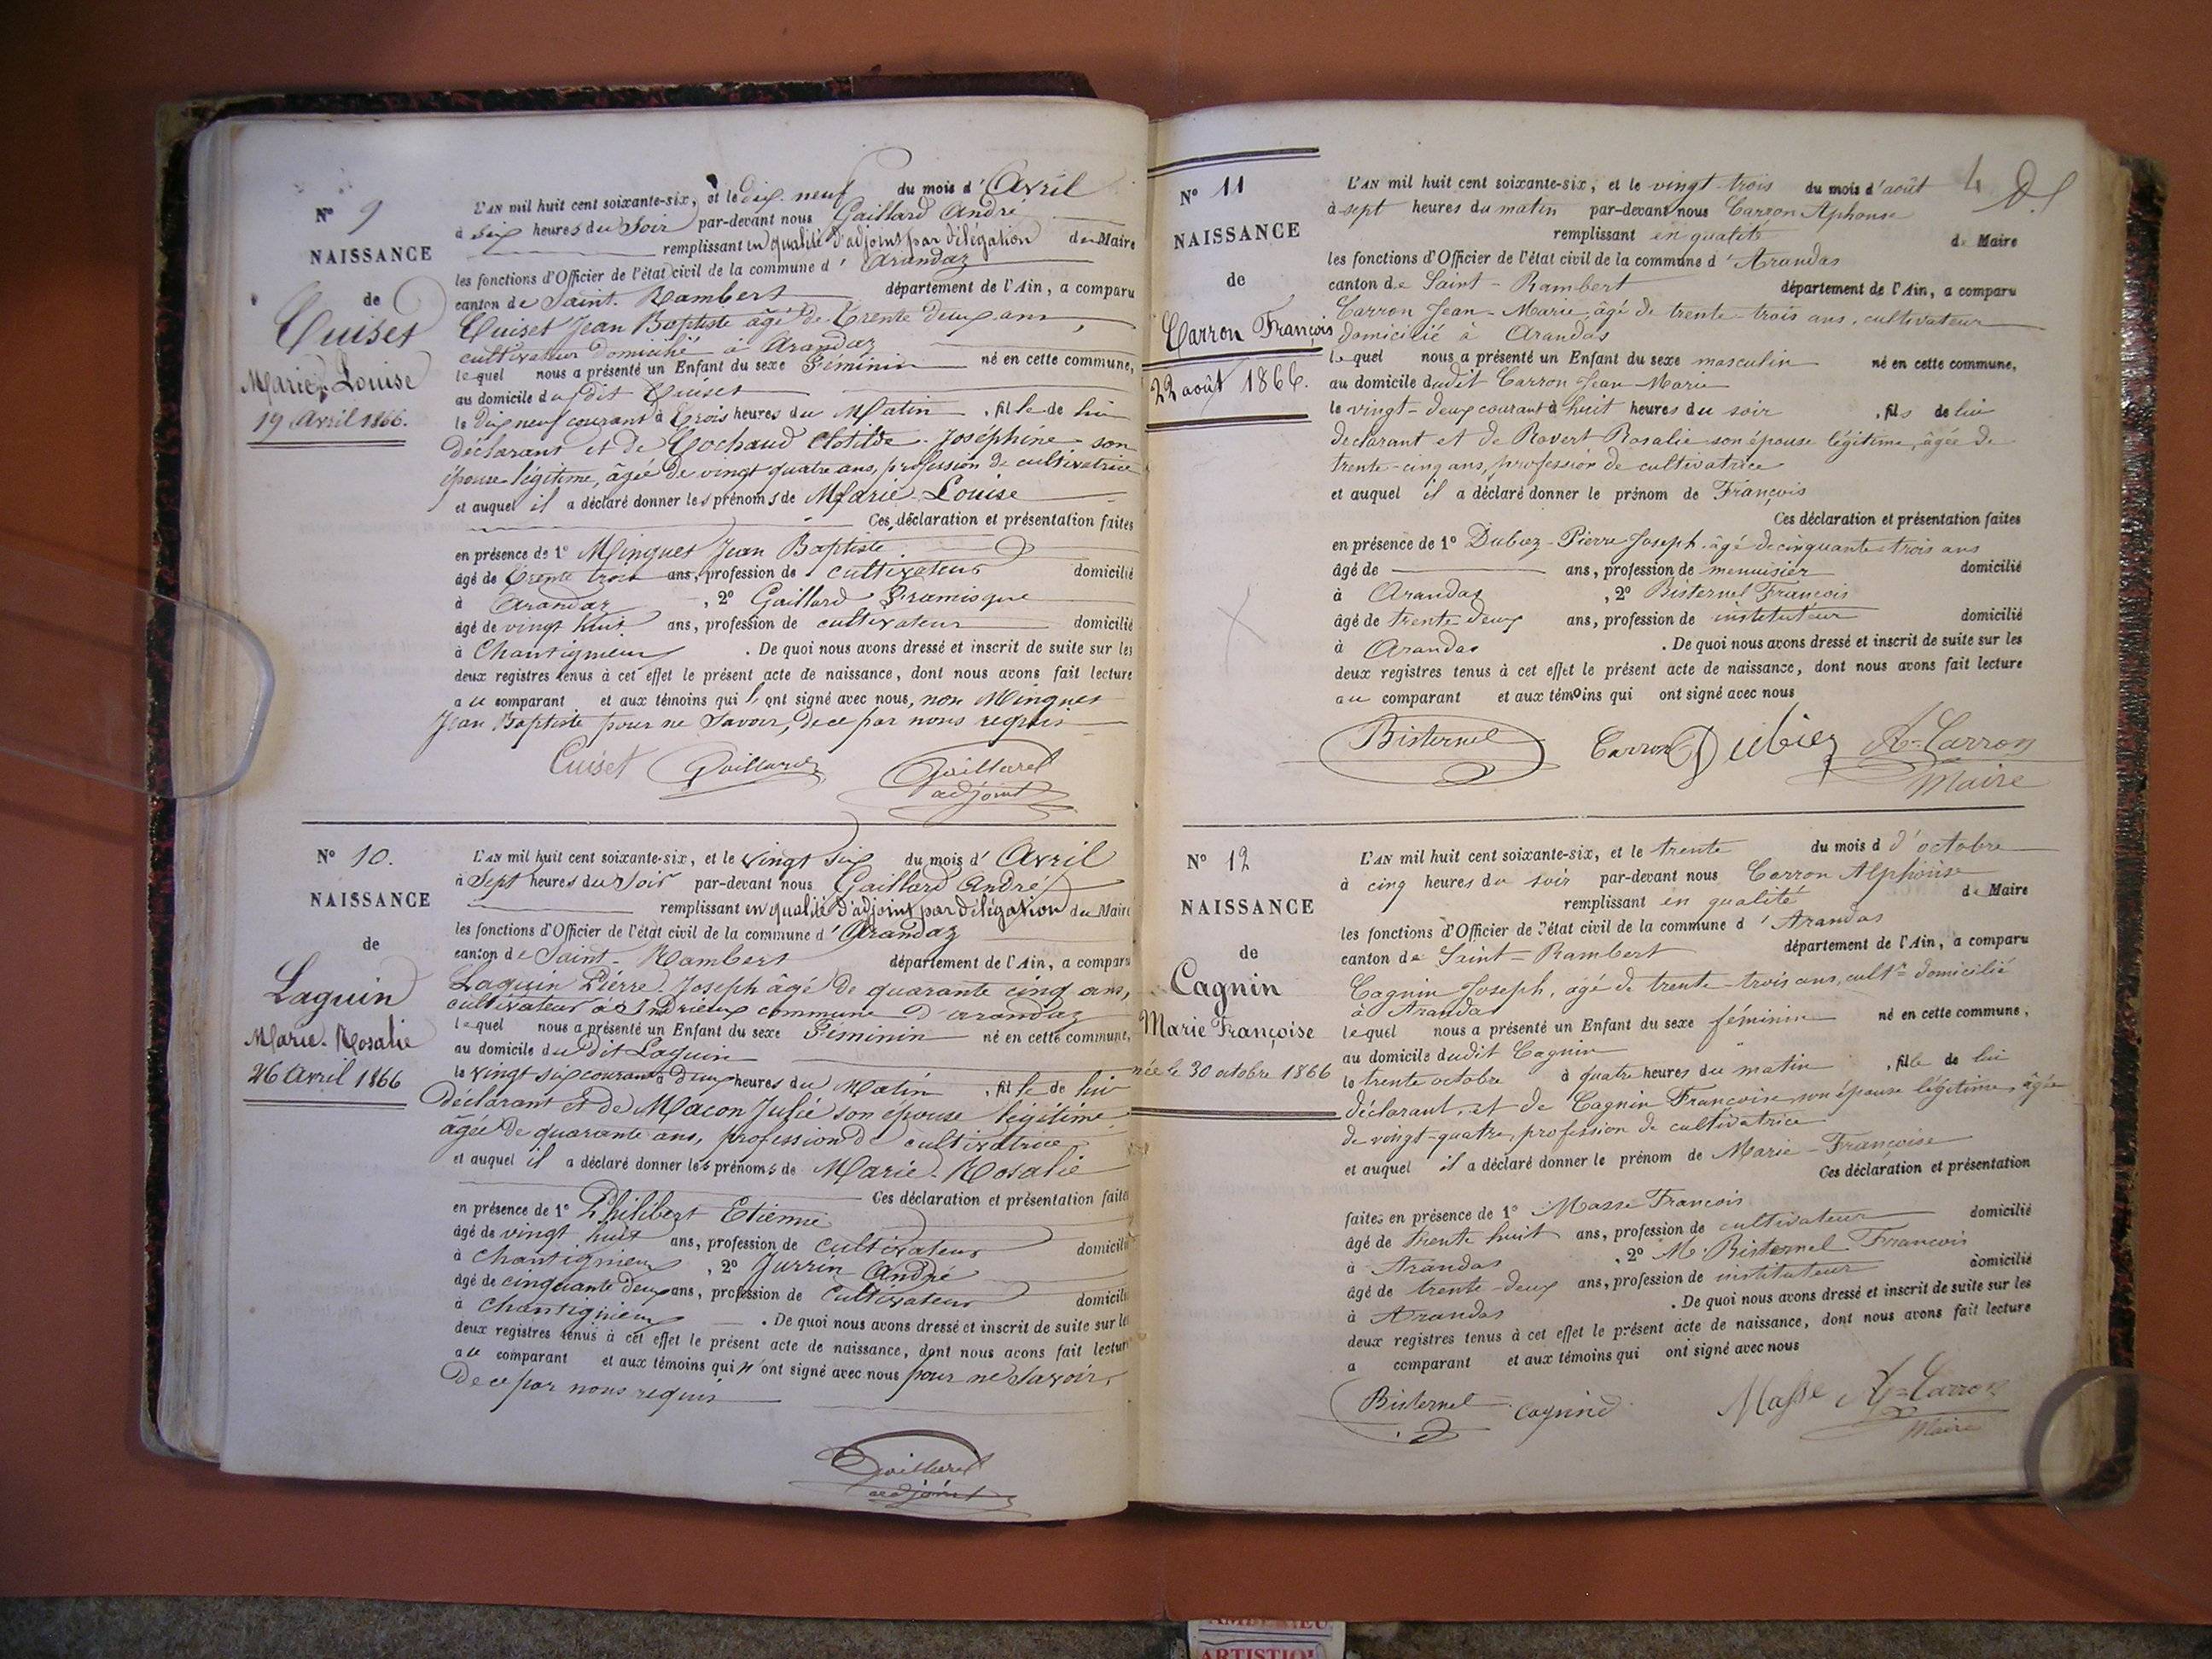 N° 9
NAISSANCE
de
Cuiset
Marie-Louise
19 Avril 1866.
L'AN mil huit cent soixante-six, et le dix-neuf du mois d'Avril
à six heures du Soir par-devant nous Gaillard André
remplissant en qualité d'adjoint par délégation du Maire
les fonctions d'Officier de l'état civil de la commune d'Arandaz
canton de Saint-Rambert département de l'Ain, a comparu
Cuiset Jean Baptiste âgé de trente deux ans,
cultivateur domicilié à Arandaz
lequel nous a présenté un Enfant du sexe Féminin né en cette commune,
au domicile dudit Cuiset
le dix neuf courant à trois heures du Matin, fille de lui
déclarant et de Cochaud Clotilde-Joséphine son
épouse légitime, âgée de vingt quatre ans, profession de cultivatrice
et auquel il a déclaré donner les prénoms de Marie-Louise
Ces déclaration et présentation faites
en présence de 1° Minguet Jean Baptiste
âgé de trente trois ans, profession de cultivateur domicilié
à Arandaz, 2° Gaillard
âgé de vingt huit ans, profession de cultivateur domicilié
à Chantignieux. De quoi nous avons dressé et inscrit de suite sur les
deux registres tenus à cet effet le présent acte de naissance, dont nous avons fait lecture
au comparant et aux témoins qui l'ont signé avec nous, non Minguet
Jean Baptiste pour ne savoir, de ce par nous requis
Cuiset Gaillard Gaillard
adjoint
N° 10.
NAISSANCE
de
Laguin
Marie-Rosalie
26 Avril 1866
L'AN mil huit cent soixante-six, et le vingt six du mois d'Avril
à Sept heures du Soir par-devant nous Gaillard André
remplissant en qualité d'adjoint par délégation du Maire
les fonctions d'Officier de l'état civil de la commune d'Arandaz
canton de Saint-Rambert département de l'Ain, a comparu
Laguin Pierre-Joseph âgé de quarante cinq ans,
cultivateur à Indrieux commune d'arandaz
lequel nous a présenté un Enfant du sexe Féminin né en cette commune,
au domicile dudit Laguin
le vingt six courant à deux heures du Matin, fille de lui
déclarant et de Macon Julie son épouse légitime
âgée de quarante ans, profession de cultivatrice
et auquel il a déclaré donner les prénoms de Marie-Rosalie
Ces déclaration et présentation faites
en présence de 1° Philibert Etienne
âgé de vingt huit ans, profession de cultivateur domicilié
à Chantignieux, 2° Jurrin André
âgé de cinquante deux ans, profession de Cultivateur domicilié
à Chantignieux. De quoi nous avons dressé et inscrit de suite sur les
deux registres tenus à cet effet le présent acte de naissance, dont nous avons fait lecture
au comparant et aux témoins qui n'ont signé avec nous pour ne savoir,
de ce par nous requis
Gaillard
adjoint
4
N° 11
NAISSANCE
de
Carron François
22 août 1866.
L'AN mil huit cent soixante-six, et le vingt-trois du mois d'août
à sept heures du matin par-devant nous Carron Aphonse
remplissant en qualité de Maire
les fonctions d'Officier de l'état civil de la commune d'Arandas
canton de Saint-Rambert département de l'Ain, a comparu
Carron Jean-Marie âgé de trente-trois ans, cultivateur
domicilié à Arandas
lequel nous a présenté un Enfant du sexe masculin né en cette commune,
au domicile dudit Carron Jean-Marie
le vingt-deux courant à huit heures du soir, fils de lui
déclarant et de Ravert Rosalie son épouse légitime, âgée de
trente-cinq ans, profession de cultivatrice
et auquel il a déclaré donner le prénom de François
Ces déclaration et présentation faites
en présence de 1° Dubiez-Pierre Joseph âgé de cinquante trois ans
âgé de ans, profession de menuisier domicilié
à Arandas, 2° Bisternel François
âgé de trente deux ans, profession de instituteur domicilié
à Arandas. De quoi nous avons dressé et inscrit de suite sur les
deux registres tenus à cet effet le présent acte de naissance, dont nous avons fait lecture
au comparant et aux témoins qui ont signé avec nous
Bisternel Carron Dubiez A-Carron
Maire
N° 12
NAISSANCE
de
Cagnin
Marie Françoise
née le 30 octobre 1866
L'AN mil huit cent soixante-six, et le trente du mois d d'octobre
à cinq heures du soir par-devant nous Carron Alphonse
remplissant en qualité de Maire
les fonctions d'Officier de l'état civil de la commune d'Arandas
canton de Saint-Rambert département de l'Ain, a comparu
Cagnin Joseph, âgé de trente-trois ans, cultr domicilié
à Arandas
lequel nous a présenté un Enfant du sexe féminin né en cette commune,
au domicile dudit Cagnin
le trente octobre à quatre heures du matin, fille de lui
déclarant, et de Cagnin Françoise, son épouse légitime, âgée
de vingt-quatre, profession de cultivatrice
et auquel il a déclaré donner le prénom de Marie-Françoise
Ces déclaration et présentation
faites en présence de 1° Masse François
âgé de trente huit ans, profession de cultivateur domicilié
à Arandas, 2° M. Bisternel François
âgé de trente-deux ans, profession de instituteur domicilié
à Arandas. De quoi nous avons dressé et inscrit de suite sur les
deux registres tenus à cet effet le présent acte de naissance, dont nous avons fait lecture
a comparant et aux témoins qui ont signé avec nous
Bisternel Cagnind Masse A-Carron
Maire